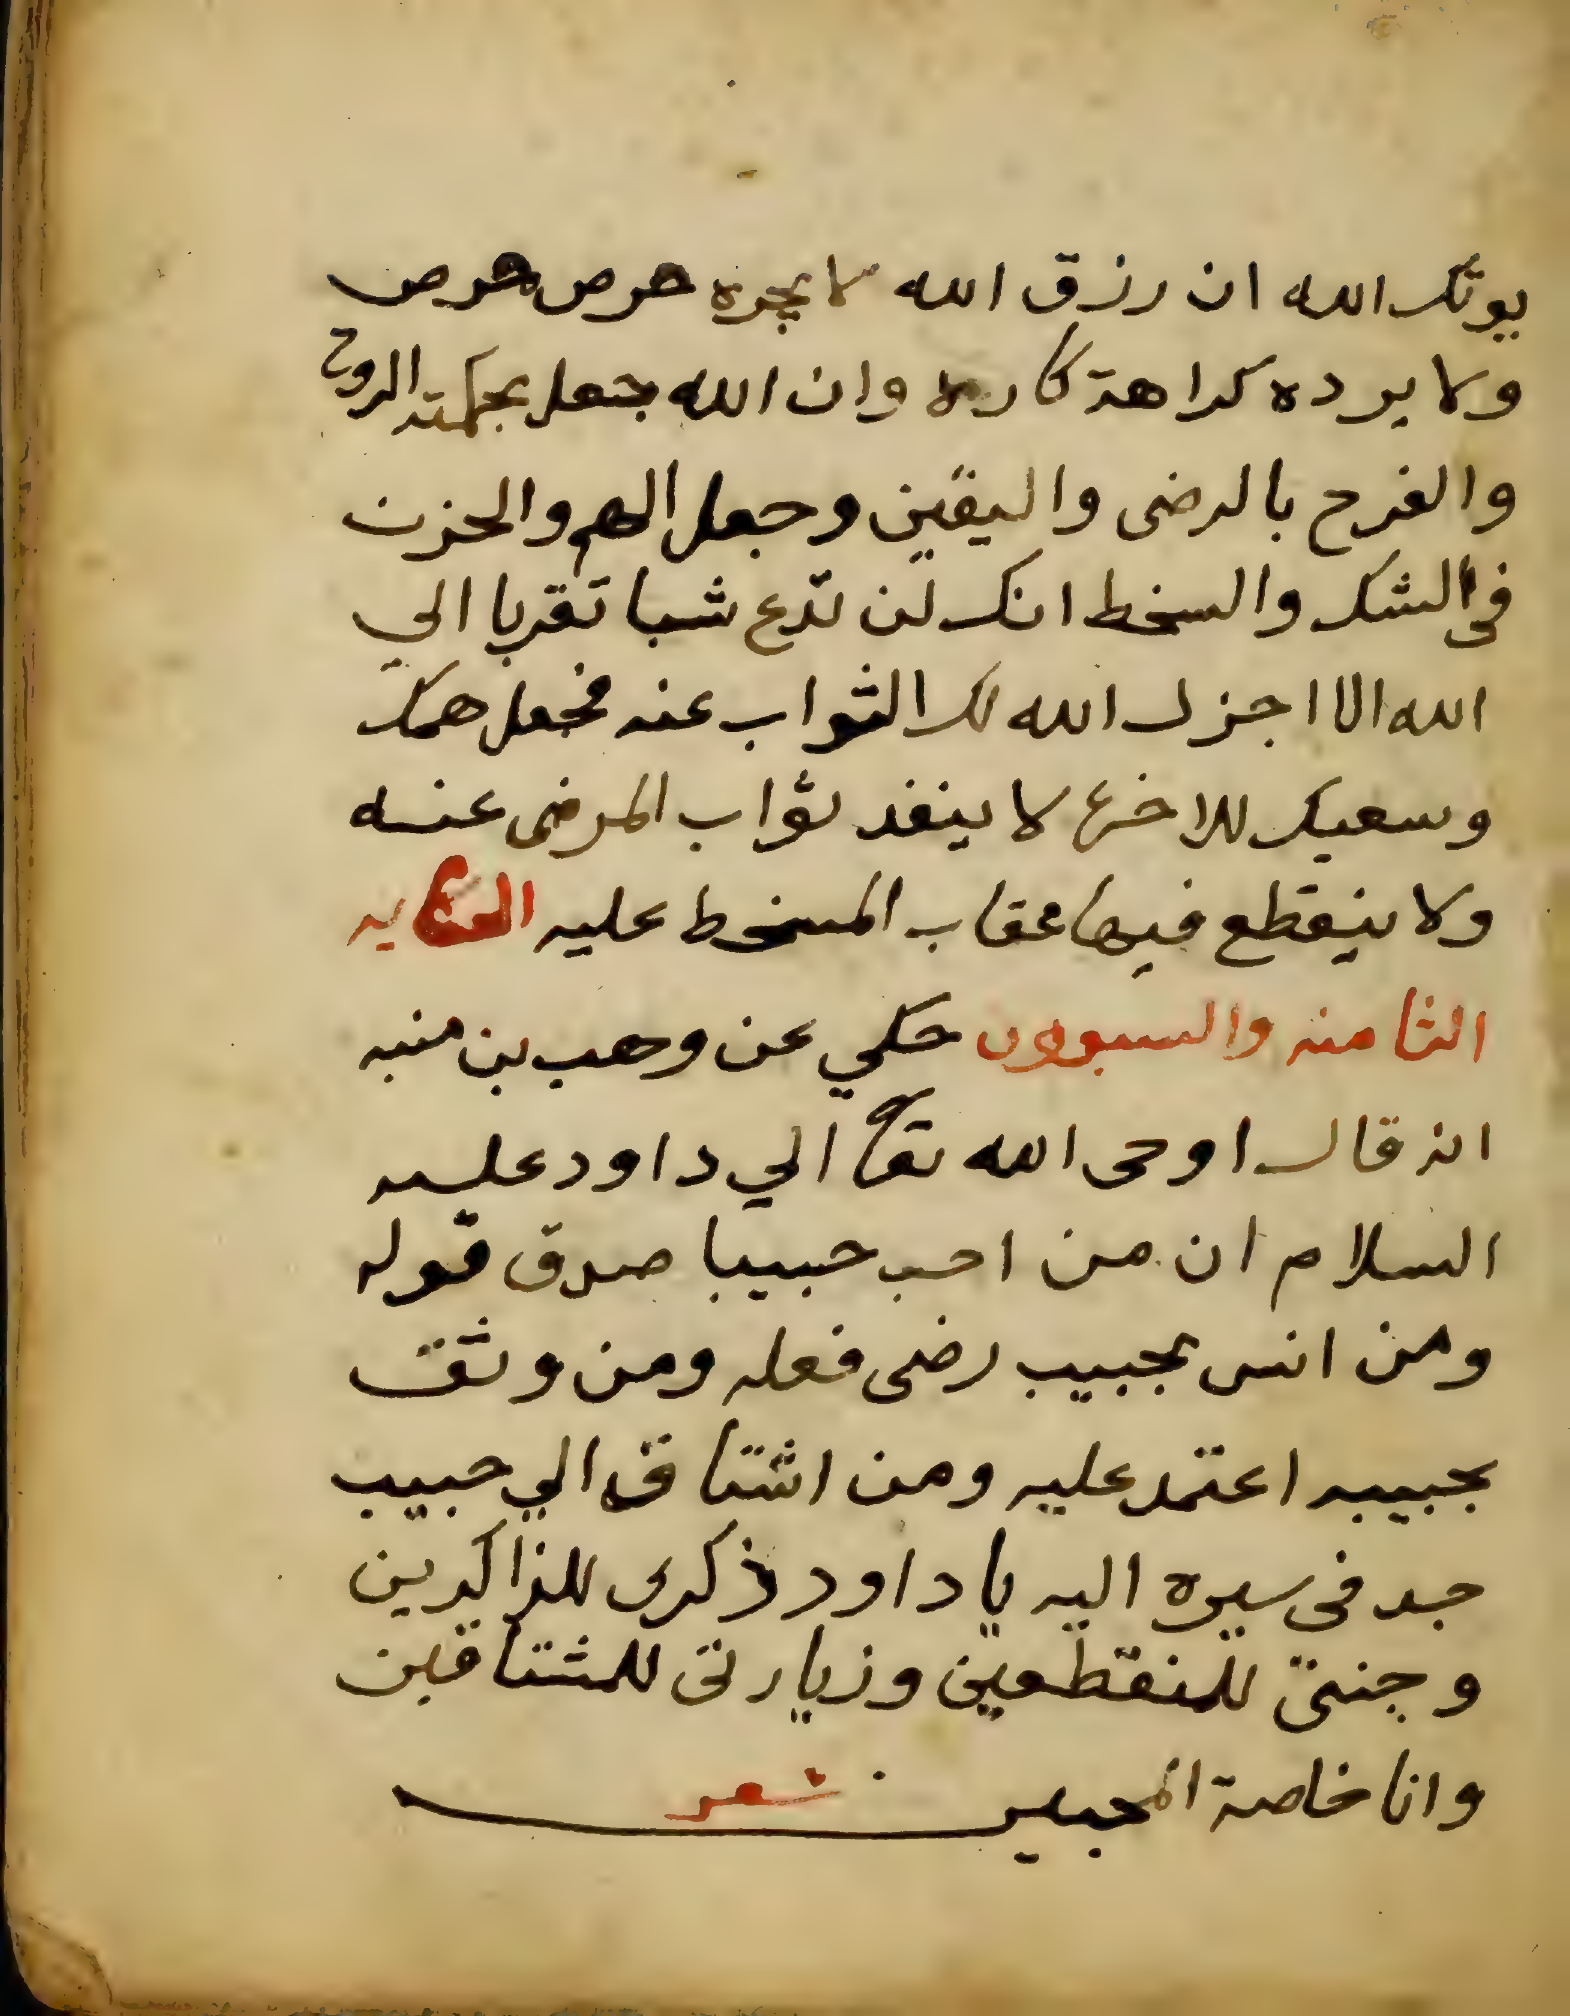 يوتك الله ان رزق الله لا يجره حرص حرص
ولا يرده كراهة كاره وان الله جعل بحكمته الروح
والفرح بالرضى واليقين وجعل الهم والحزن
في الشك والسخط انك لن تدع شيا تقربا الي
الله الا اجزل الله لك الثواب عنه فجعل همك
وسعيك للاخرة لا ينفد ثواب المرضى عنه
ولا ينقطع فيها عقاب المسخوط عليه الحكايه
الثامنه والسبعون حكي عن وهب بن منبه
انه قال اوحى الله تعا الي داود عليه
السلام ان من احب حبيبا صدق قوله
ومن انس بحبيب رضى فعله ومن وثق
بحبيبه اعتمد عليه ومن اشتاق الي حبيب
جد في سيره اليه يا داود ذكرى للذاكرين
وجنتي للمنقطعين وزيارتي للمشتاقين
وانا خاصة المحبين شعر